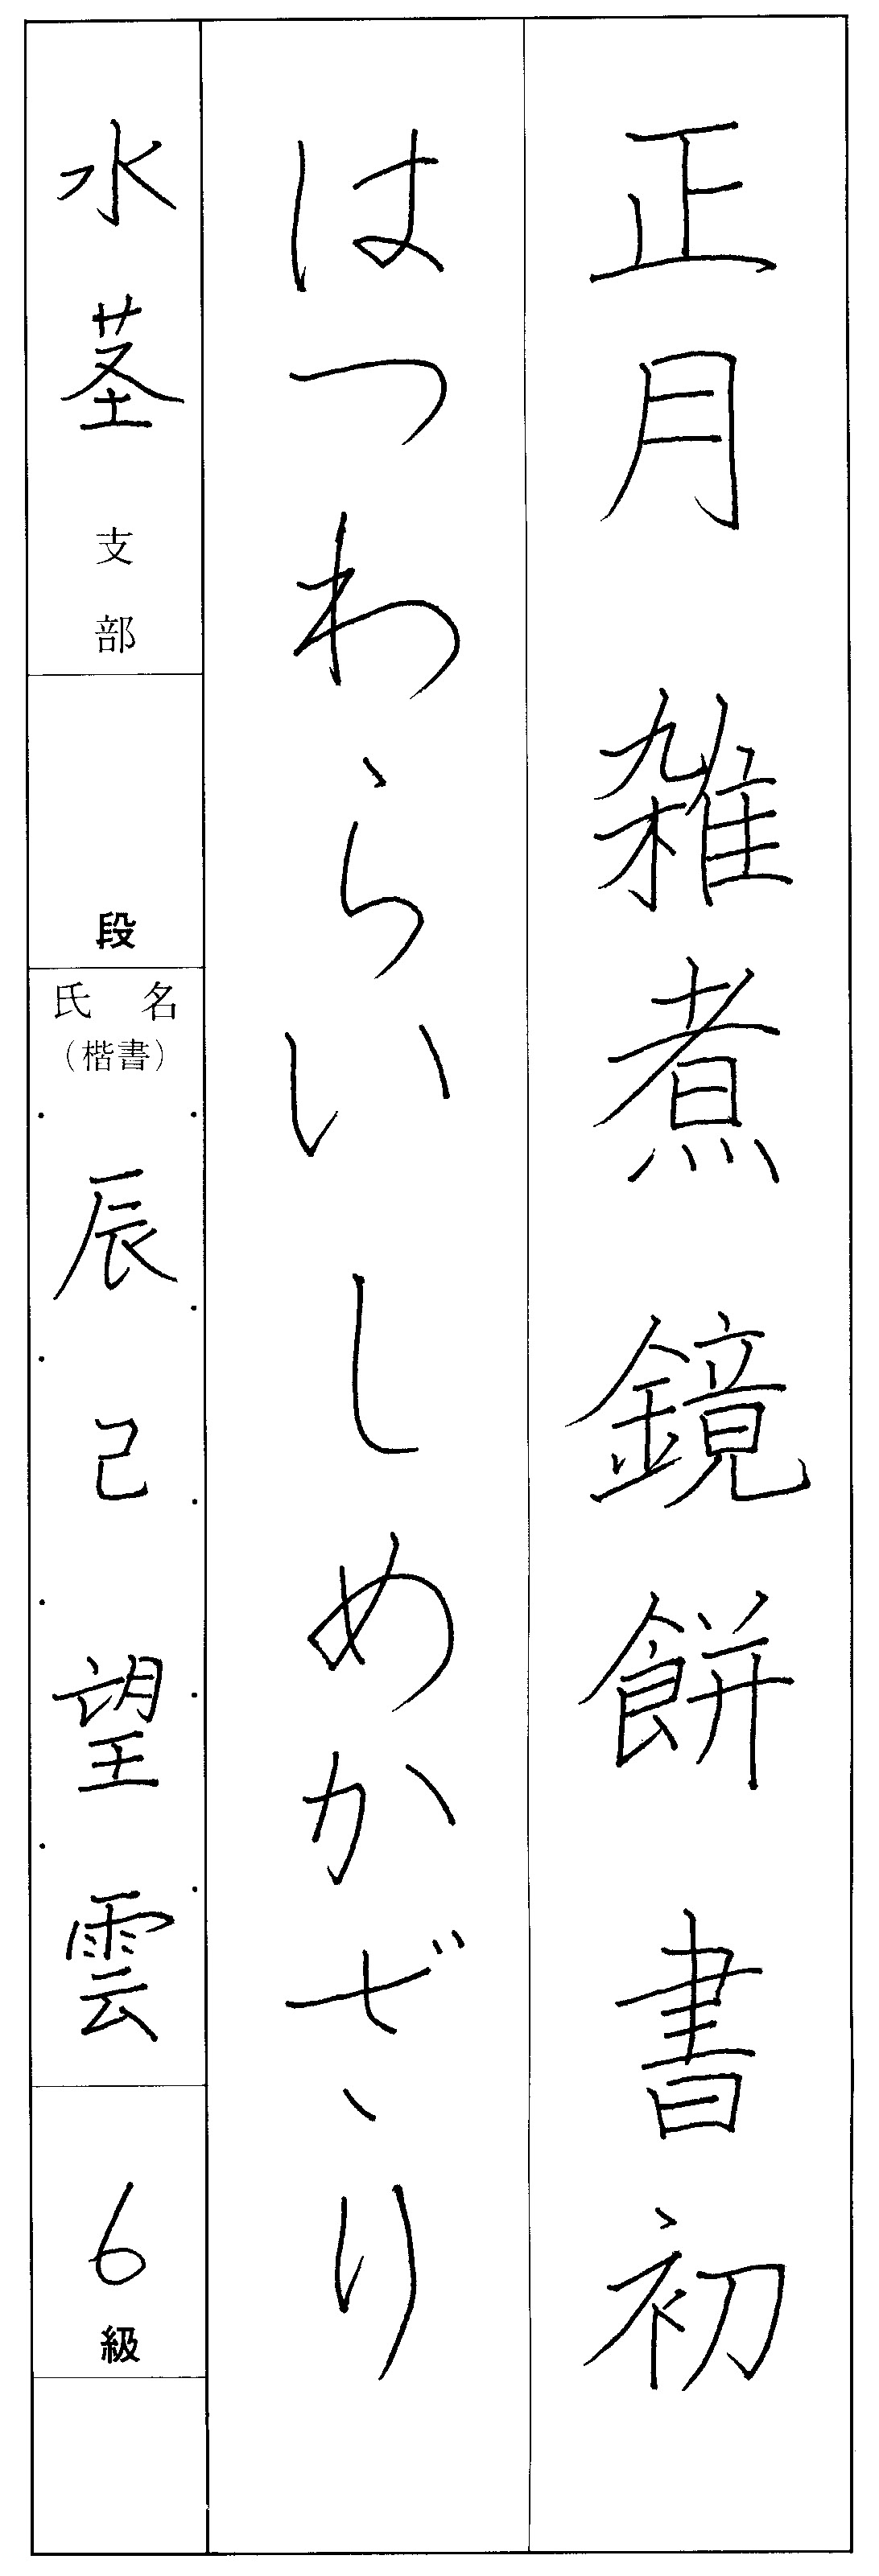 正月 雑煮 鏡餅 書初
はつわらい しめかざり
水茎支部
段
氏名
(楷書)
辰己望雲
6級